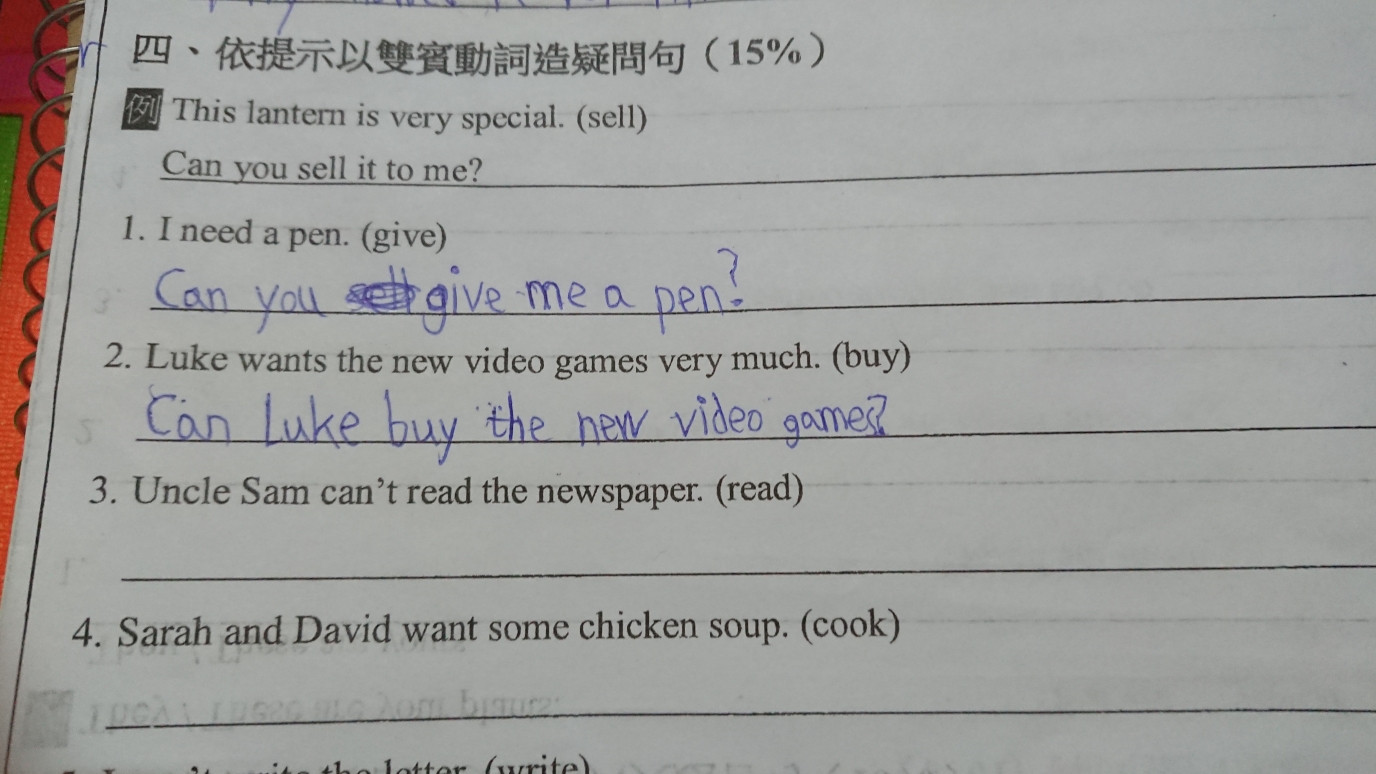 四、依提示以雙賓動詞造疑問句（15%）
例 This lantern is very special. (sell)
Can you sell it to me?
1. I need a pen. (give)
Can you give me a pen?
2. Luke wants the new video games very much. (buy)
Can Luke buy the new video games?
3. Uncle Sam can't read the newspaper. (read)
4. Sarah and David want some chicken soup. (cook)
the letter. (write)